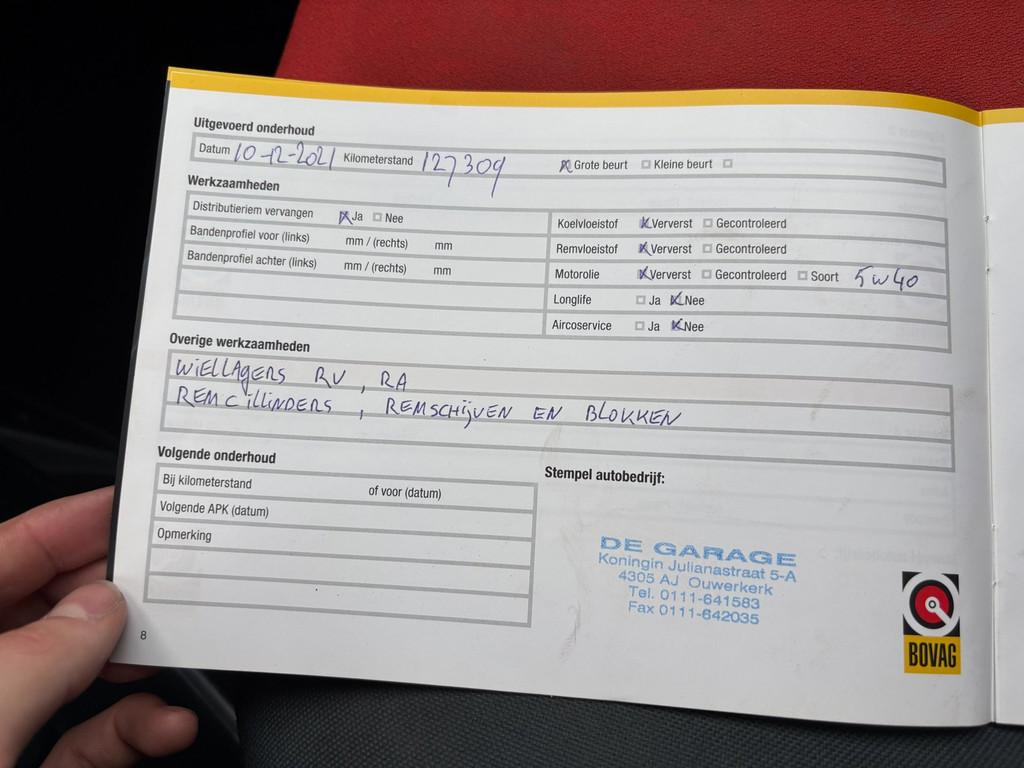 Uitgevoerd onderhoud
Datum 10-12-2021 Kilometerstand 127309 Grote beurt Kleine beurt
Werkzaamheden
Distributieriem vervangen Ja Nee
Bandenprofiel voor (links) mm / (rechts) mm
Bandenprofiel achter (links) mm / (rechts) mm
Koelvloeistof Ververst Gecontroleerd
Remvloeistof Ververst Gecontroleerd
Motorolie Ververst Gecontroleerd Soort 5w40
Longlife Ja Nee
Aircoservice Ja Nee
Overige werkzaamheden
WIELLAGERS RV, RA
REMCILLINDERS, REMSCHIJVEN EN BLOKKEN
Volgende onderhoud
Bij kilometerstand of voor (datum)
Volgende APK (datum)
Opmerking
Stempel autobedrijf:
DE GARAGE
Koningin Julianastraat 5-A
4305 AJ Ouwerkerk
Tel. 0111-641583
Fax 0111-642035
BOVAG
8